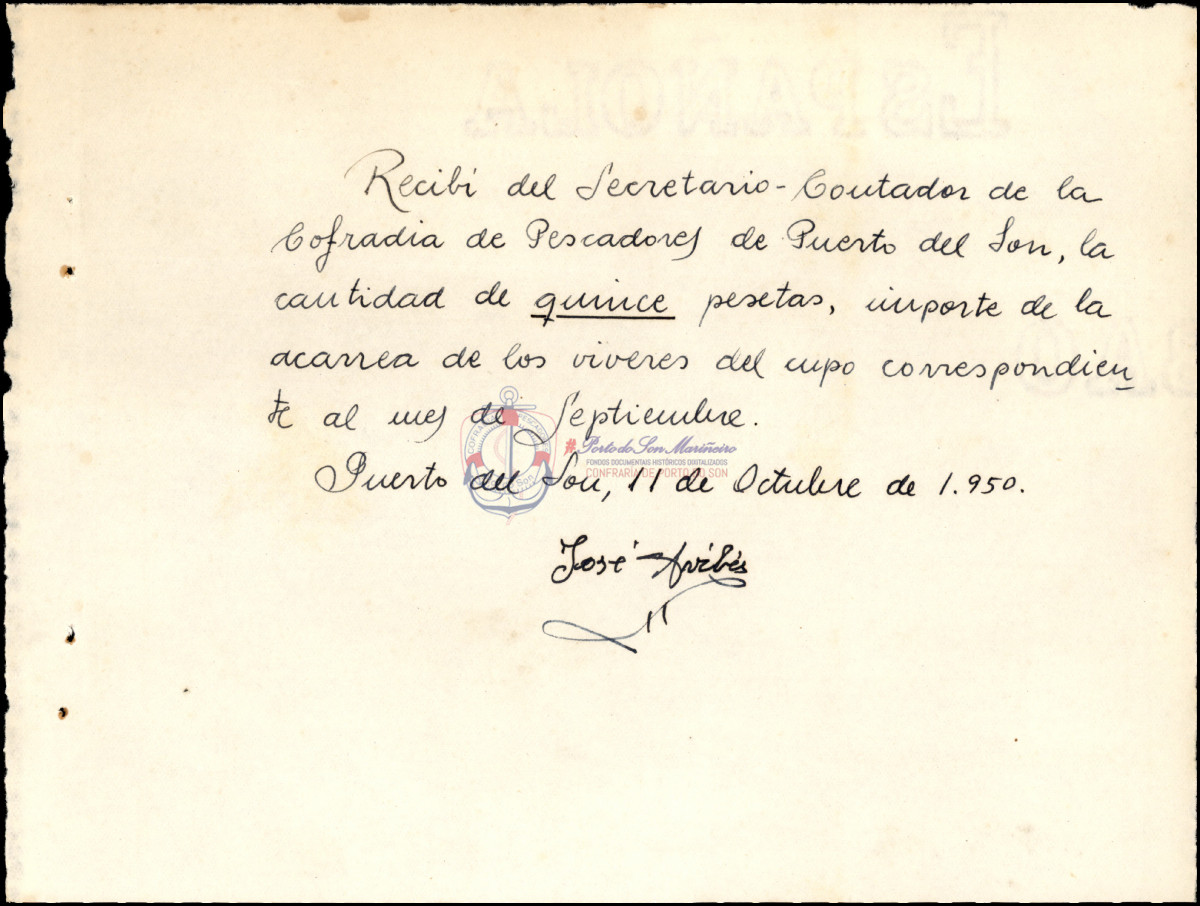 ESPAÑOLA
Recibí del Secretario-Contador de la
Cofradia de Pescadores de Puerto del Son, la
cantidad de quince pesetas, importe de la
acarrea de los viveres del cupo correspondien
te al mes de Septiembre.
#PortodoSon Mariñeiro
FONDOS DOCUMENTAIS HISTÓRICOS DIXITALIZADOS
CONFRARÍA DE PORTO DO SON
Puerto del Son, 11 de Octubre de 1.950.
José